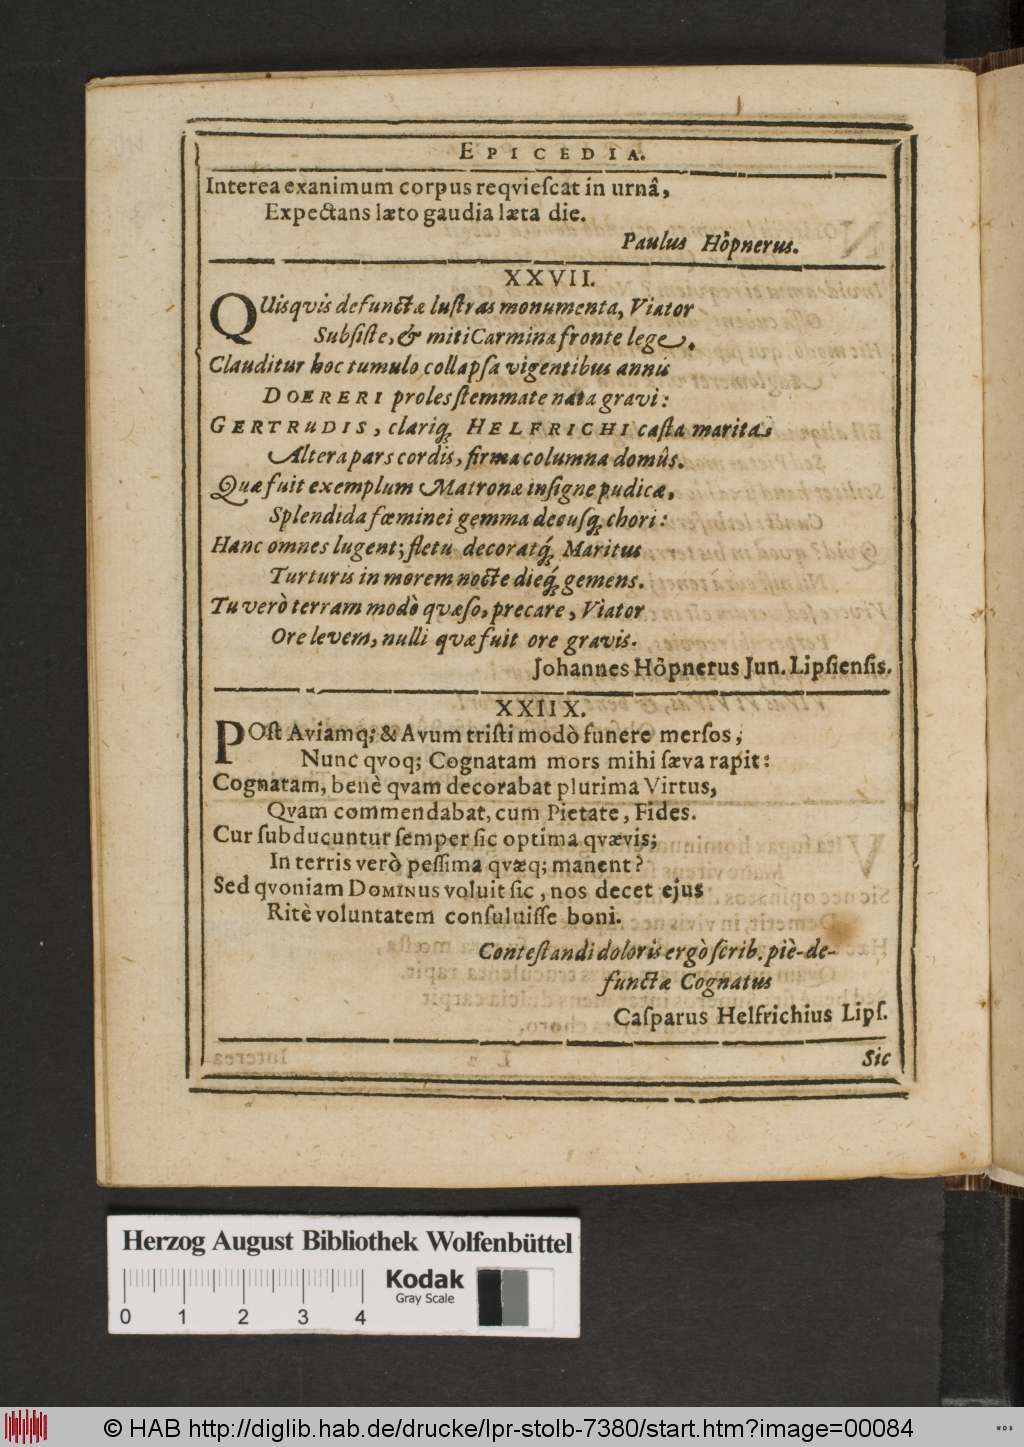 EPICEDIA.
Interea exanimum corpus reqvieſcat in urnâ,
Expectans læto gaudia læta die.
Paulus Höpnerus.
XXVII.
QUisqvis defunctæ luſtras monumenta, Viator
Subſiſte, & miti Carmina fronte lege.
Clauditur hoc tumulo collapſa vigentibus annis
DOERERI proles ſtemmate nata gravi:
GERTRUDIS, clariq; HELFRICHI caſta marita,
Altera pars cordis, firma columna domûs.
Quæ fuit exemplum Matronæ inſigne pudicæ,
Splendida fœminei gemma decuſq; chori:
Hanc omnes lugent; fletu decoratq́; Maritus
Turturis in morem nocte dieq́; gemens.
Tu verò terram modò qvæſo, precare, Viator
Ore levem, nulli qvæ fuit ore gravis.
Johannes Höpnerus Jun. Lipſienſis.
XXIIX.
POſt Aviamq; & Avum triſti modò funere merſos,
Nunc qvoq; Cognatam mors mihi ſæva rapit:
Cognatam, benè qvam decorabat plurima Virtus,
Qvam commendabat, cum Pietate, Fides.
Cur ſubducuntur ſemper ſic optima qvævis;
In terris verò peſſima qvæq; manent?
Sed qvoniam DOMINUS voluit ſic, nos decet ejus
Ritè voluntatem conſuluiſſe boni.
Conteſtandi doloris ergò ſcrib. piè-de-
functæ Cognatus
Caſparus Helfrichius Lipſ.
Sic
Herzog August Bibliothek Wolfenbüttel
Kodak
Gray Scale
0 1 2 3 4
© HAB http://diglib.hab.de/drucke/lpr-stolb-7380/start.htm?image=00084